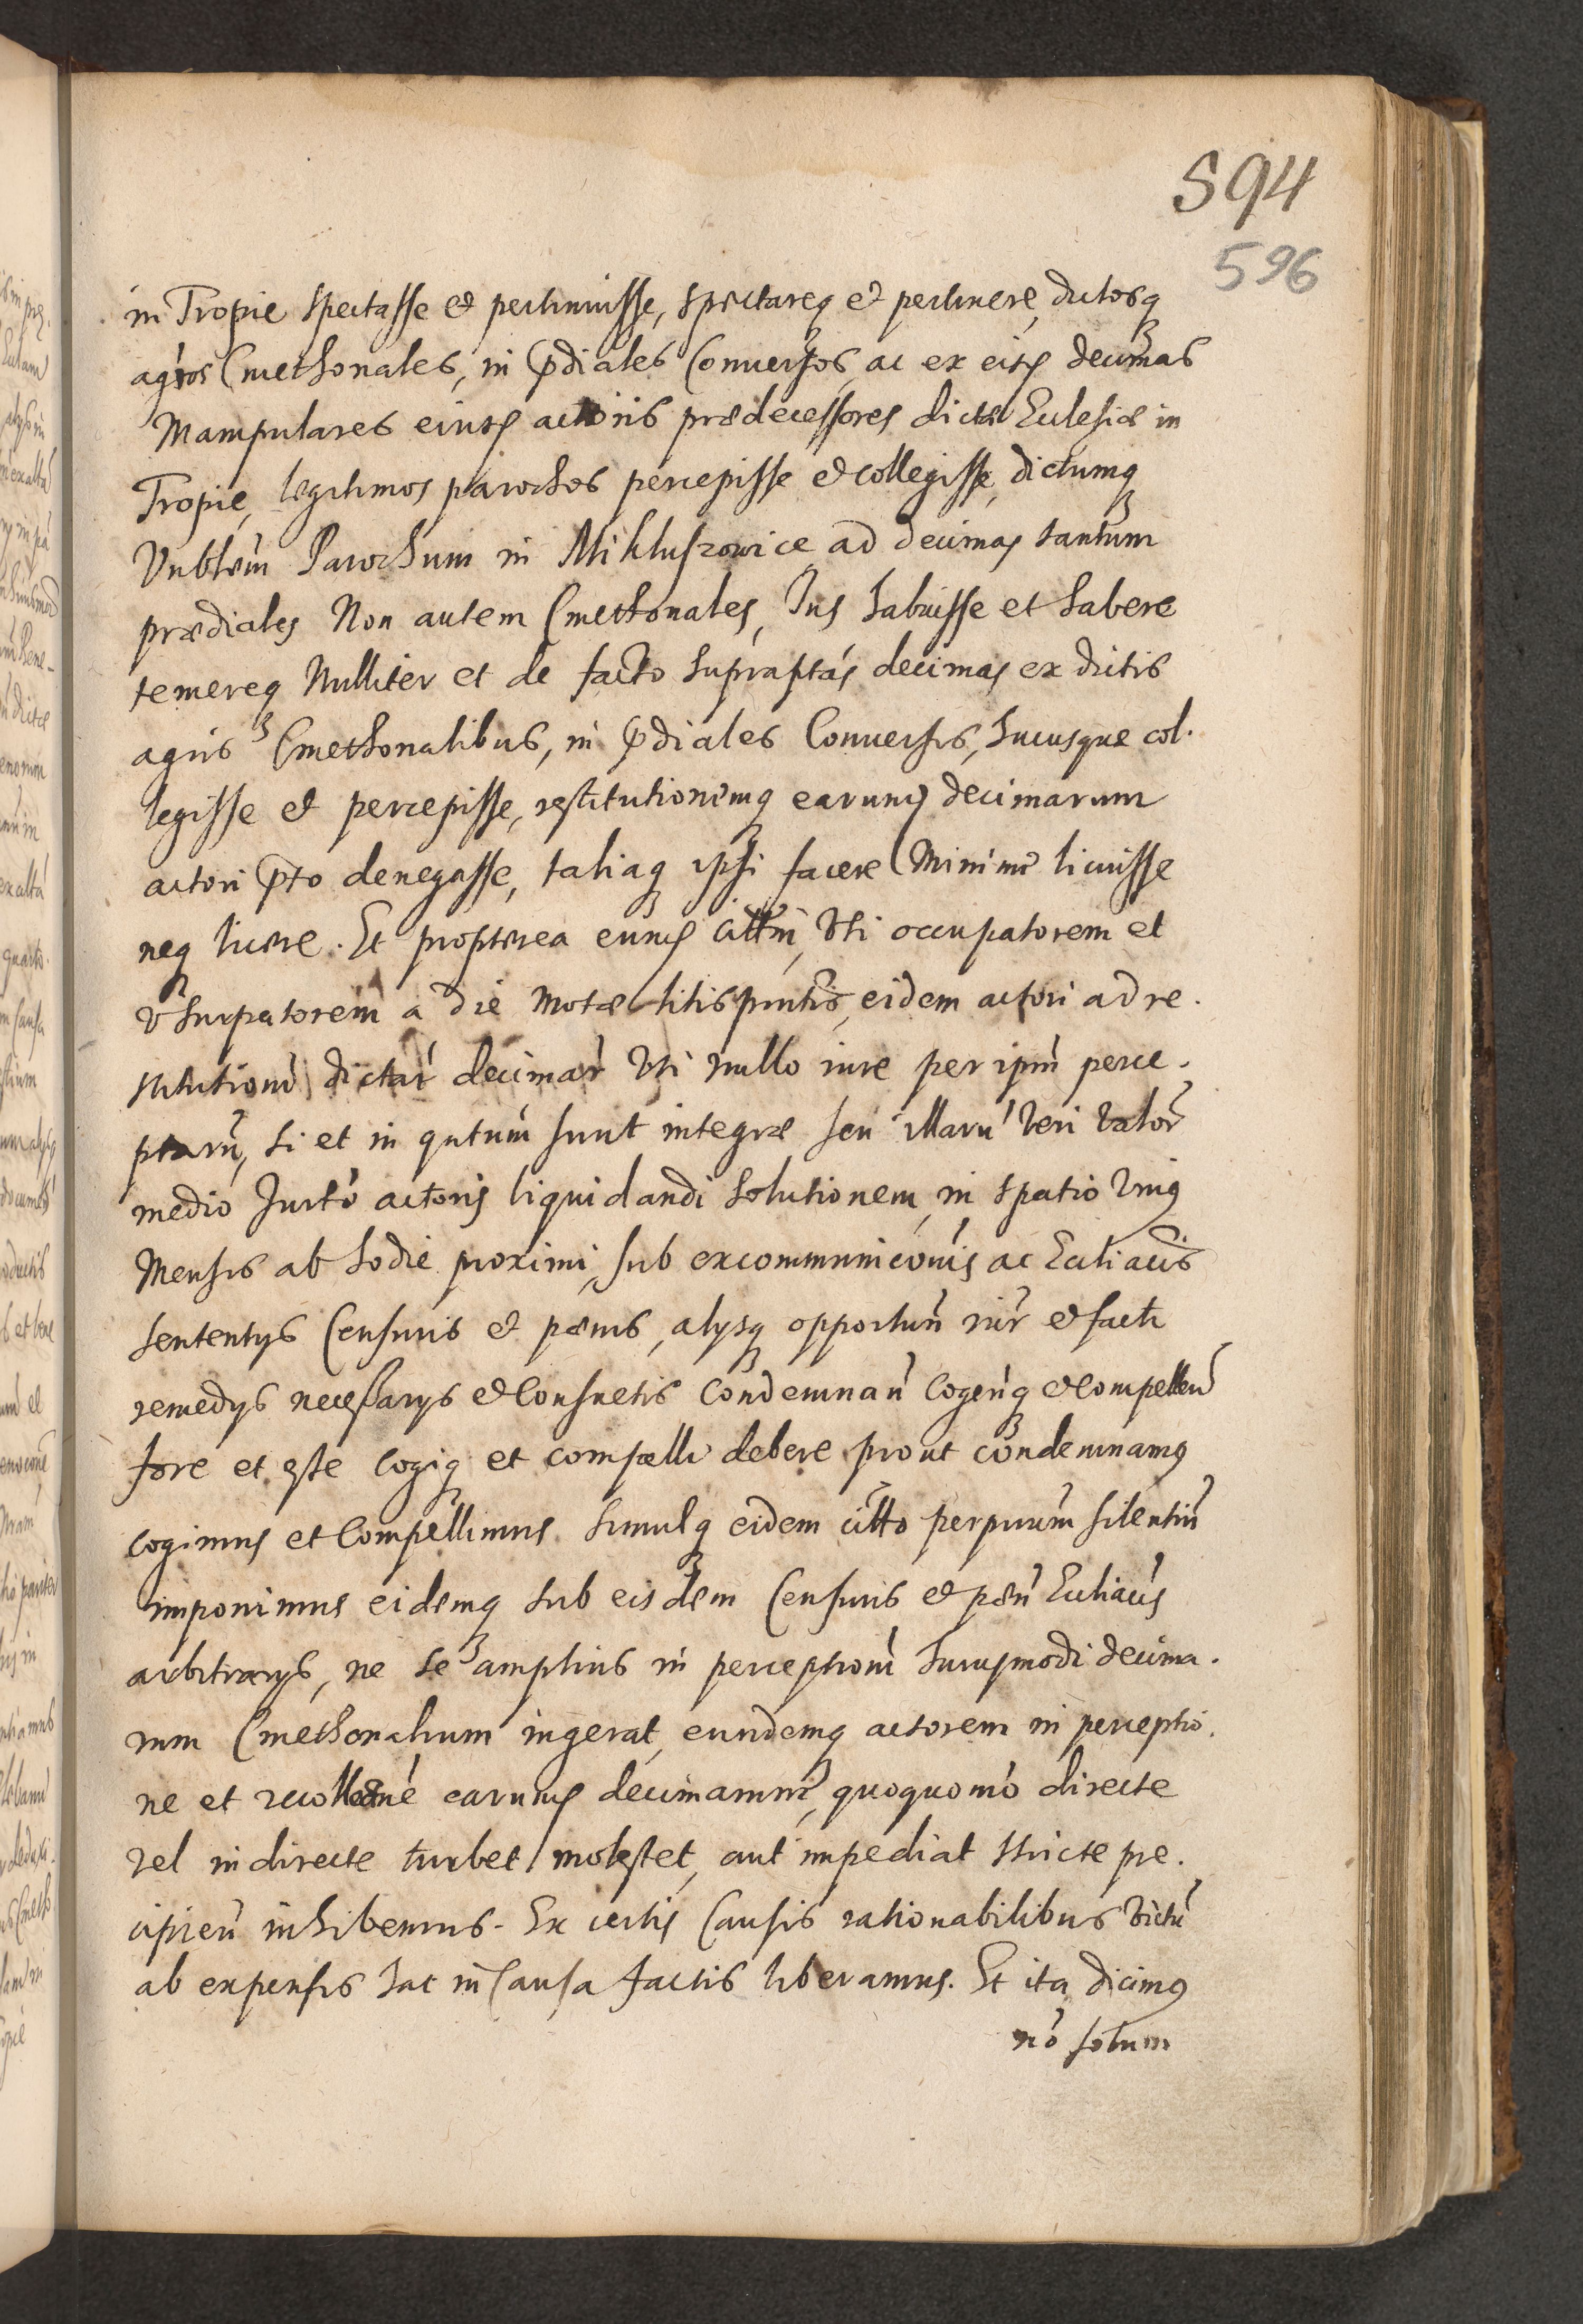 594
596
in Tropie spectasse et pertinuisse, spectareq et pertinere, dictosq
agros Cmethonales, in p̄diales Conuersos, ac ex eisd decimas
Manipulares eiusd actoris prædecessores dictæ Eclesiæ in
Tropie, legitimos parochos percepisse et collegisse, dictumq
Vnblem̄ Parochum in Mikluszowice ad decimas tantum
prædiales Non autem Cmethonales, Ius habuisse et habere
temereq Nulliter et de facto supraptas decimas ex dictis
agris Cmethonalibus, in p̄diales Conuersis, hucusque col.
legisse et percepisse, restitutionemq earund decimarum
actori p̄to denegasse, taliaq ipsi facere Minime licuisse
neq licere. Et propterea eund citt̄m, Vti occupatorem et
vsurpatorem a die Motæ litis pn̄tis, eidem actori ad re.
stitutionē dictar̄ decimar̄ Vti nullo iure per ipm̄ perce.
ptarū, si et in qn̄tum sunt integræ seu illarū Veri Valor̄
medio Jurto actoris liquidandi solutionem, in spatio Vnig
Mensis ab hodie proximi, sub excommuniconis ac Eccliacis
sententys Censuris et pænis, alysq opportun̄ iur̄ et facti
remedys necessarys et Consuetis Condemnan̄ Cogen̄q et compellen̄
fore et esse Cogiq et compelli debere prout condemnamg
cogimus et Compellimus simulq eidem citto perpuum silentiū
imponimus eidemq sub eisdem Censuris et pæn̄ Eccliacis
arbitrarys, ne se amplius in perceptionē huiusmodi decima.
rum Cmethonalium ingerat, eundemq actorem in perceptio.
ne et recollectnē earund decimarum, quoquomō directe
vel indirecte turbet molestet, aut impediat stricte pre.
cipien̄ inhibemus. Ex certis Causis rationabilibus Victū
ab expensis hac in Causa factis liberamus. Et ita dicimg
nō solum